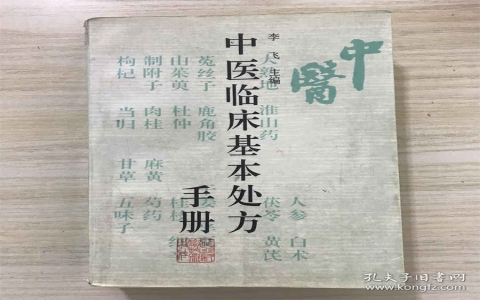 中醫
李飞主编
中医临床基本处方
手册
人熟地 淮山药
菟丝子 鹿角胶
山茱萸 杜仲
制附子 肉桂
枸杞 当归
麻黄
甘草 五味子
芍药
桂枝
人参 白术
茯苓 黄芪
孔夫子旧书网
www.kongfz.com